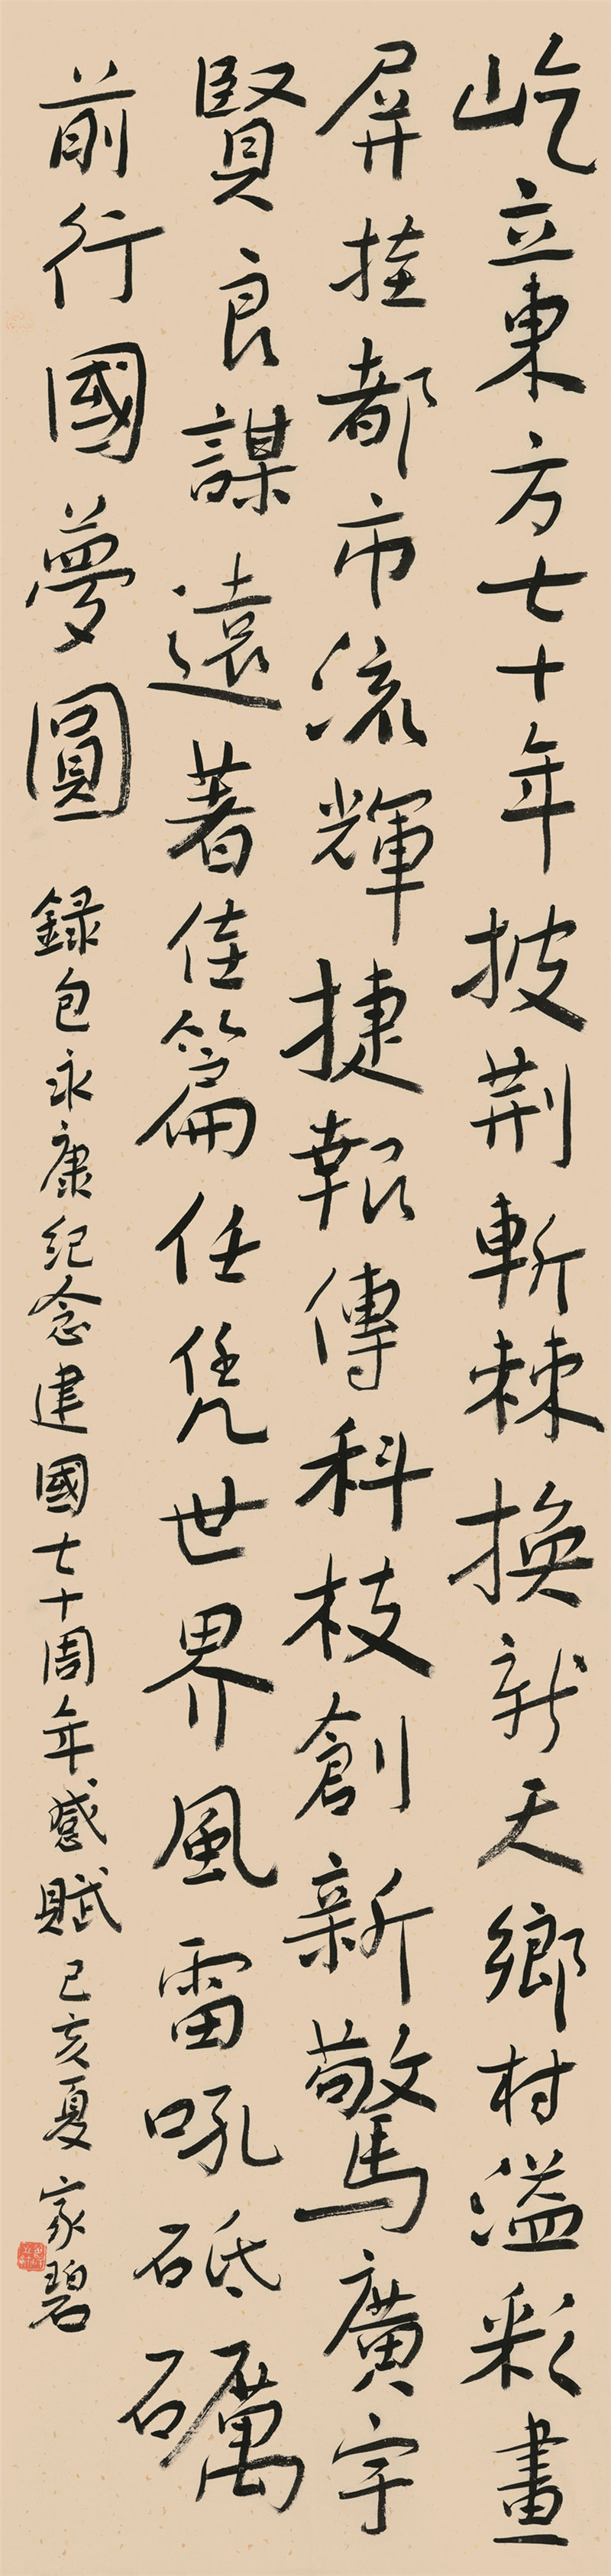 屹立東方七十年披荆斬棘換新天鄉村溢彩畫
屏挂都市流輝捷報傳科技創新驚廣宇
賢良謀遠著佳篇任凭世界風雷吼砥礪
前行國夢圓
録包永康紀念建國七十周年感賦己亥夏家碧